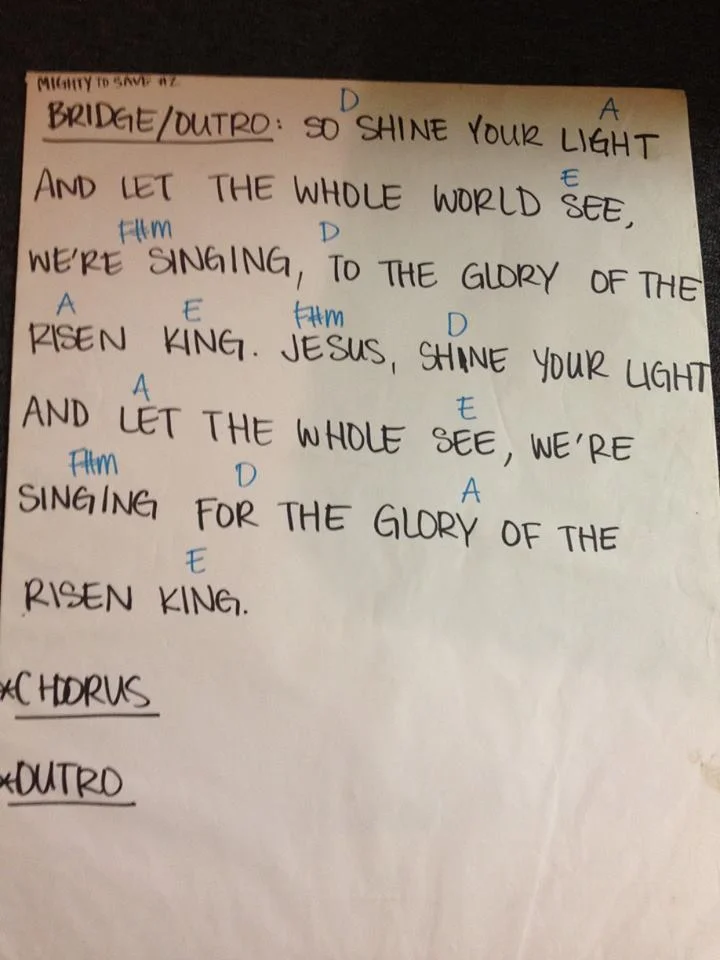 MIGHTY TO SAVE #2
D A
BRIDGE/OUTRO: SO SHINE YOUR LIGHT
E
AND LET THE WHOLE WORLD SEE,
F#m D
WE'RE SINGING, TO THE GLORY OF THE
A E F#m D
RISEN KING. JESUS, SHINE YOUR LIGHT
A E
AND LET THE WHOLE SEE, WE'RE
F#m D A
SINGING FOR THE GLORY OF THE
E
RISEN KING.
*CHORUS
*OUTRO